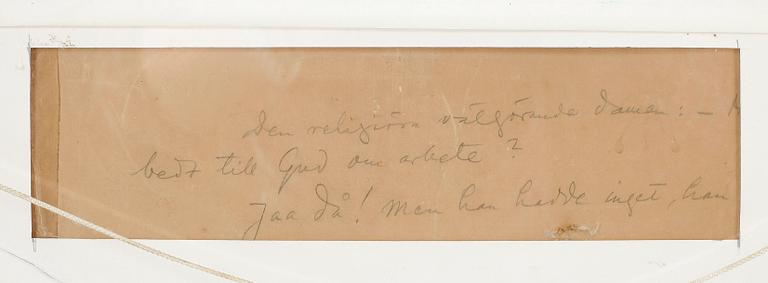 Den religiösa välgörande damen: –
bedt till Gud om arbete?
Jaa då! Men han hadde inget, han